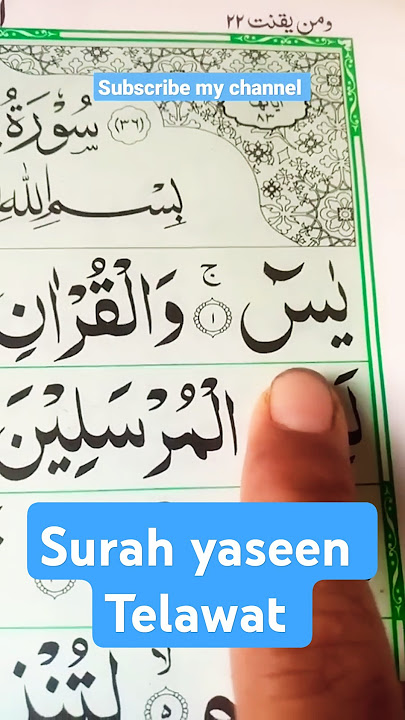 ومن يقنت ٢٢
Subscribe my channel
٨٣
سُوْرَةُ
(٣٦)
بِسْمِ اللهِ
يٰسٓ ۚ ١ وَالْقُرْاٰنِ
الْمُرْسَلِيْنَ
Surah yaseen
Telawat
٥